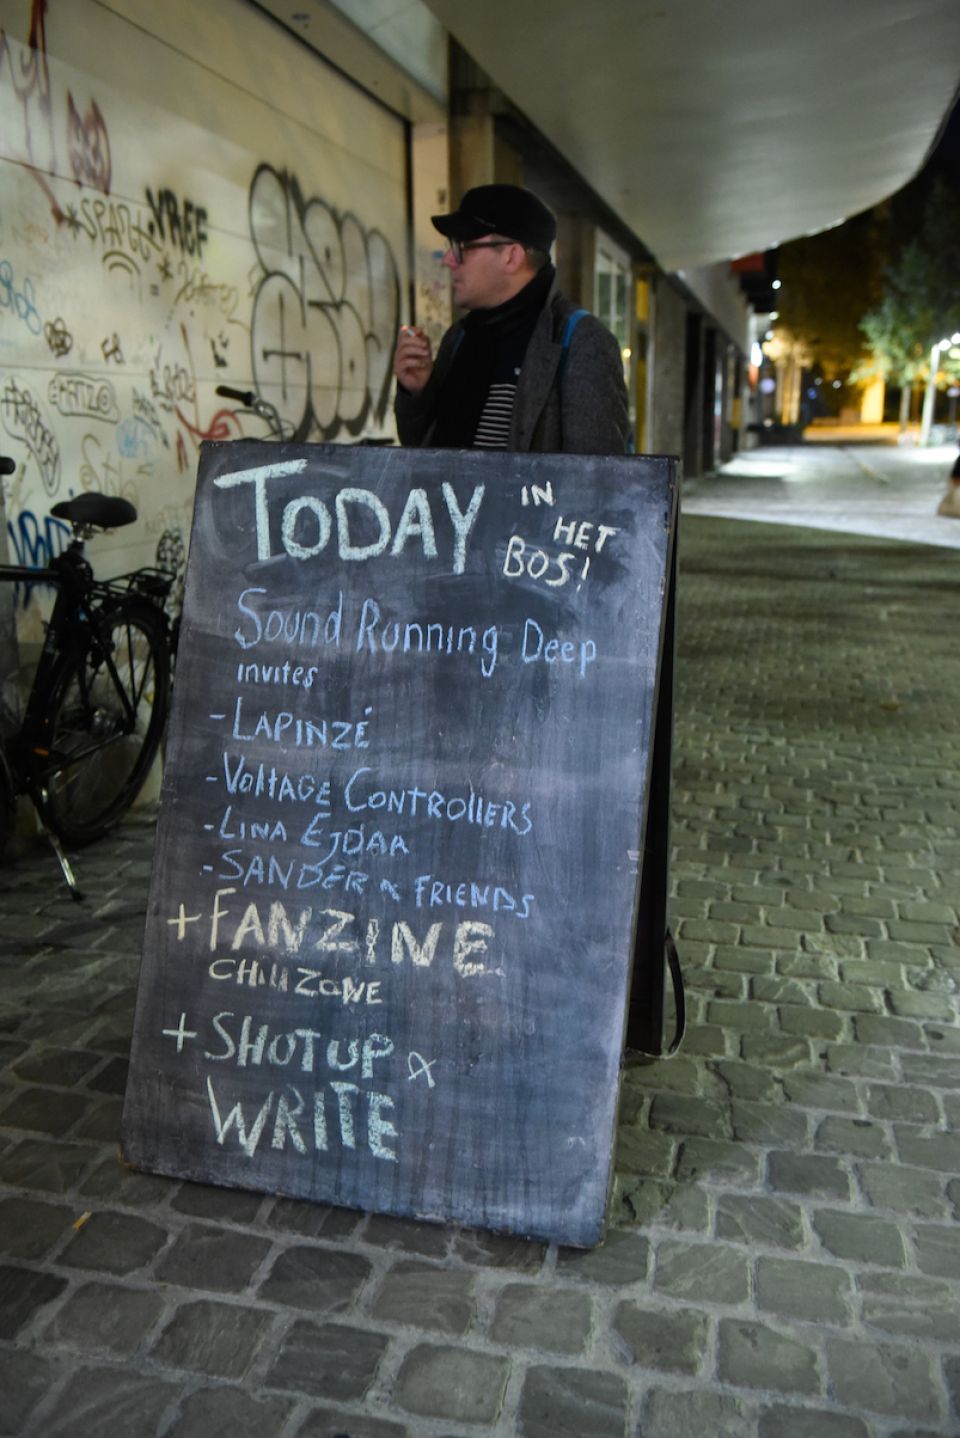 TODAY IN
HET
BOS!
Sound Running Deep
invites
- LAPINZÉ
- VOLTAGE CONTROllERS
- LINA EJDAA
- SANDER & FRIENDS
+ FANZINE
CHIllZONE
+ SHUT UP &
WRITE
VREF